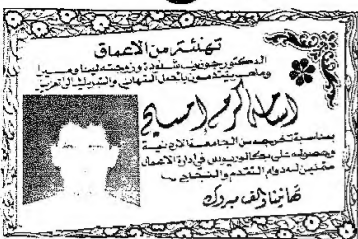 تهنئة من الاعماق
الدكتور جوزيف شلودة وزوجته لينا و
وماهر يتقدمون بأجمل التهاني والتبريك الى العزيز
اسامة كرم امسيح
بمناسبة تخرجه من الجامعة الاردنية
وحصوله على بكالوريوس في ادارة الاعمال
متمنين له دوام التقدم والنجاح
تهانينا والف مبروك